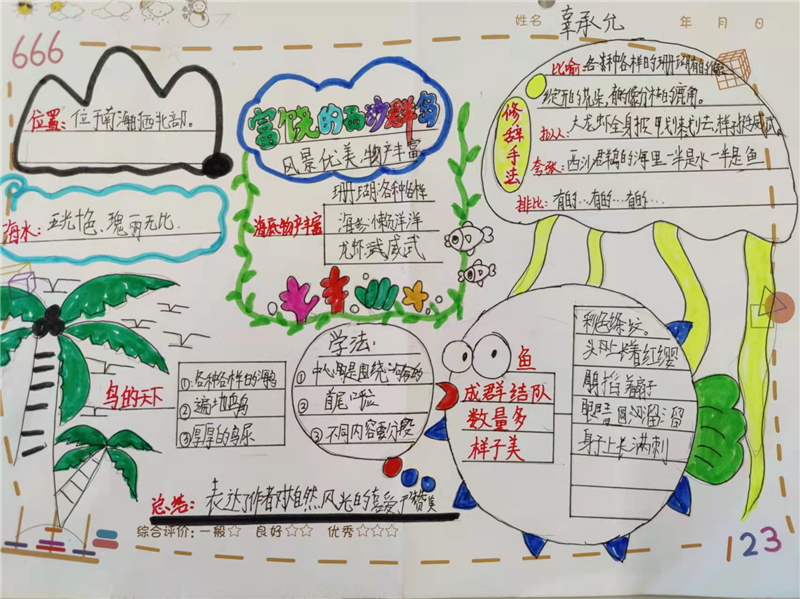 姓名 辜承允 年 月 日
666
位置：位于南海西北部。
海水：五光十色、瑰丽无比.
富饶的西沙群岛
风景优美,物产丰富
海底物产丰富
珊瑚各种各样
海参懒洋洋
龙虾威武
修辞手法
比喻：各种各样的珊瑚有的像
绽开的花朵,有的像分枝的鹿角。
拟人：大龙虾全身披甲,划来划去,样子挺威武。
夸张：西沙群岛的海里一半是水一半是鱼
排比：有的…有的…有的…
鸟的天下
①各种各样的海鸟
②遍地鸟蛋
③厚厚的鸟尿
学法：
①中心句是围绕
②首尾呼应
③不同内容要分段
鱼
成群结队
数量多
样子美
头上长着红缨
眼睛圆溜溜
身子上长满刺
总结：表达了作者对自然风光的喜爱和赞美
综合评价：一般☆ 良好☆☆ 优秀☆☆☆
123